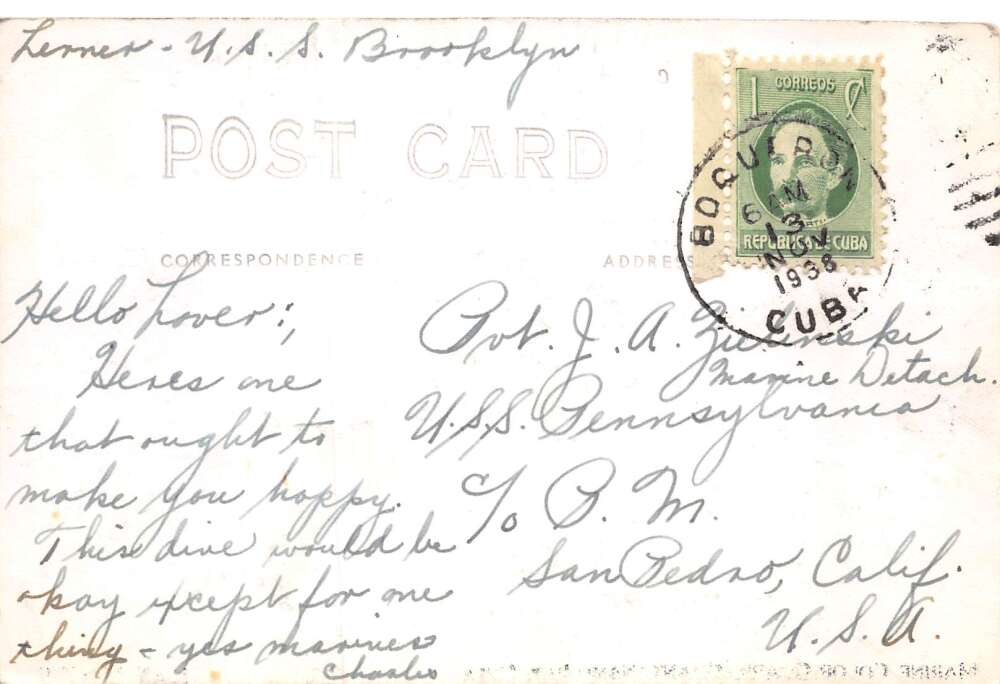 Lerner - U.S.S. Brooklyn
POST CARD
CORRESPONDENCE
ADDRESS
1 CORREOS ₵
REPUBLICA DE CUBA
BOQUERON
6 AM
13
NOV
1938
CUBA
Hello Lover:,
Heres one
that ought to
make you happy.
This dive would be
okay except for one
thing - yes marines
Charles
Pvt. J. A. Zielinski
Marine Detach.
U.S.S. Pennsylvania
c/o P. M.
San Pedro, Calif.
U. S. A.
MARINE COLOR GUARD